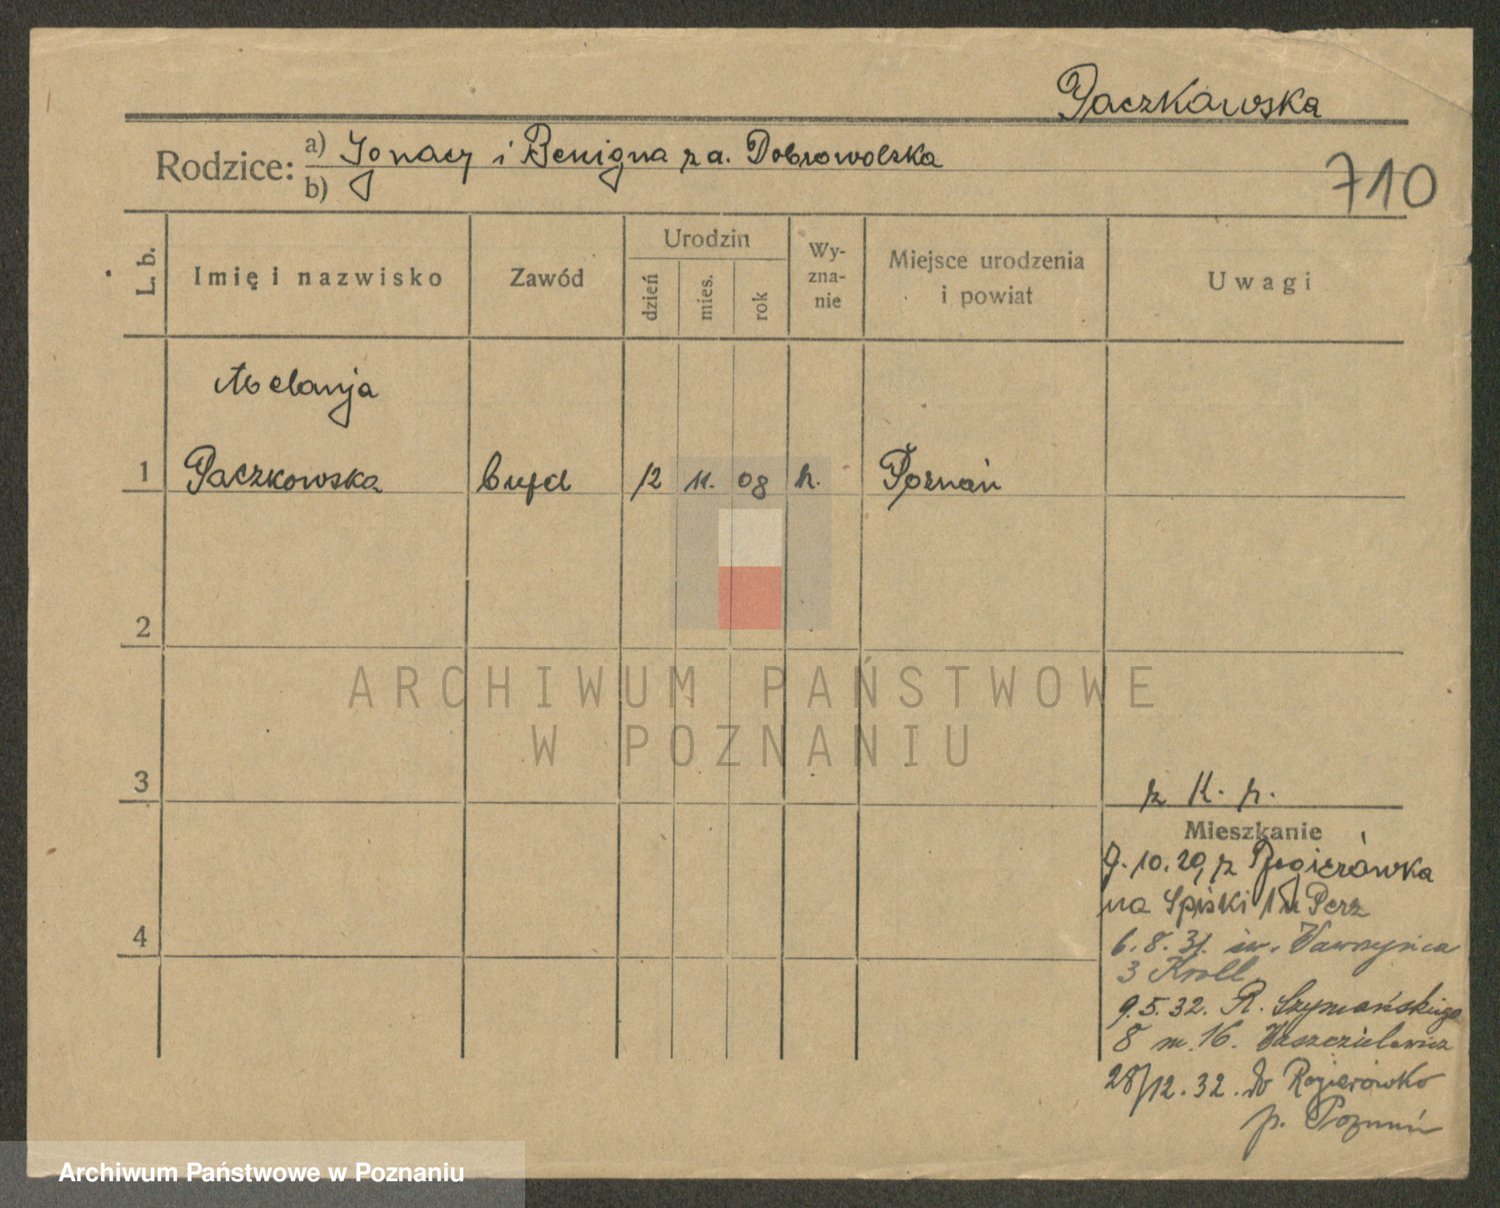 Paczkowska
Rodzice: a) Ignacy i Benigna z d. Dobrowolska
b)
710
L. b.
Imię i nazwisko
Zawód
Urodzin
dzień
mies.
rok
Wy-
zna-
nie
Miejsce urodzenia
i powiat
Uwagi
Melanja
1 Paczkowska 12 11. 08 Poznań
2
3
4
z K. p.
Mieszkanie
9. 10. 29, z Rogierówka
na Spiski Perz
6. 8. 31. św. Wawrzyńca
3 Kroll
9. 5. 32. R. Szymańskiego
8 m. 16.
28/12. 32. do Rogierówko
p. Poznań
ARCHIWUM PAŃSTWOWE
W POZNANIU
Archiwum Państwowe w Poznaniu